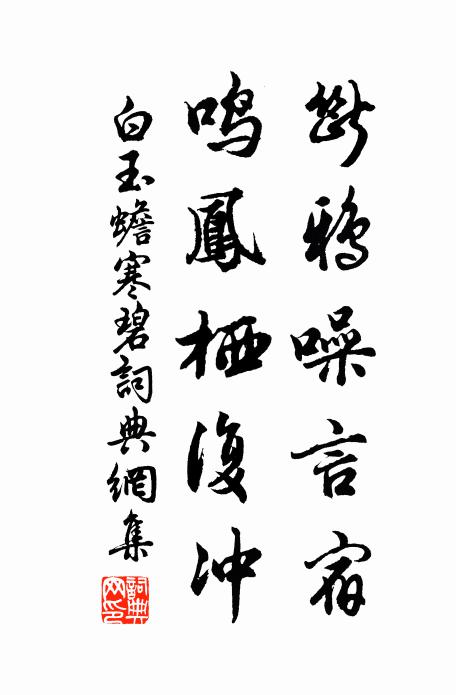 斷鴉噪言宿
鳴鳳栖復冲
白玉蟾寒碧詞典網集
詞典網印